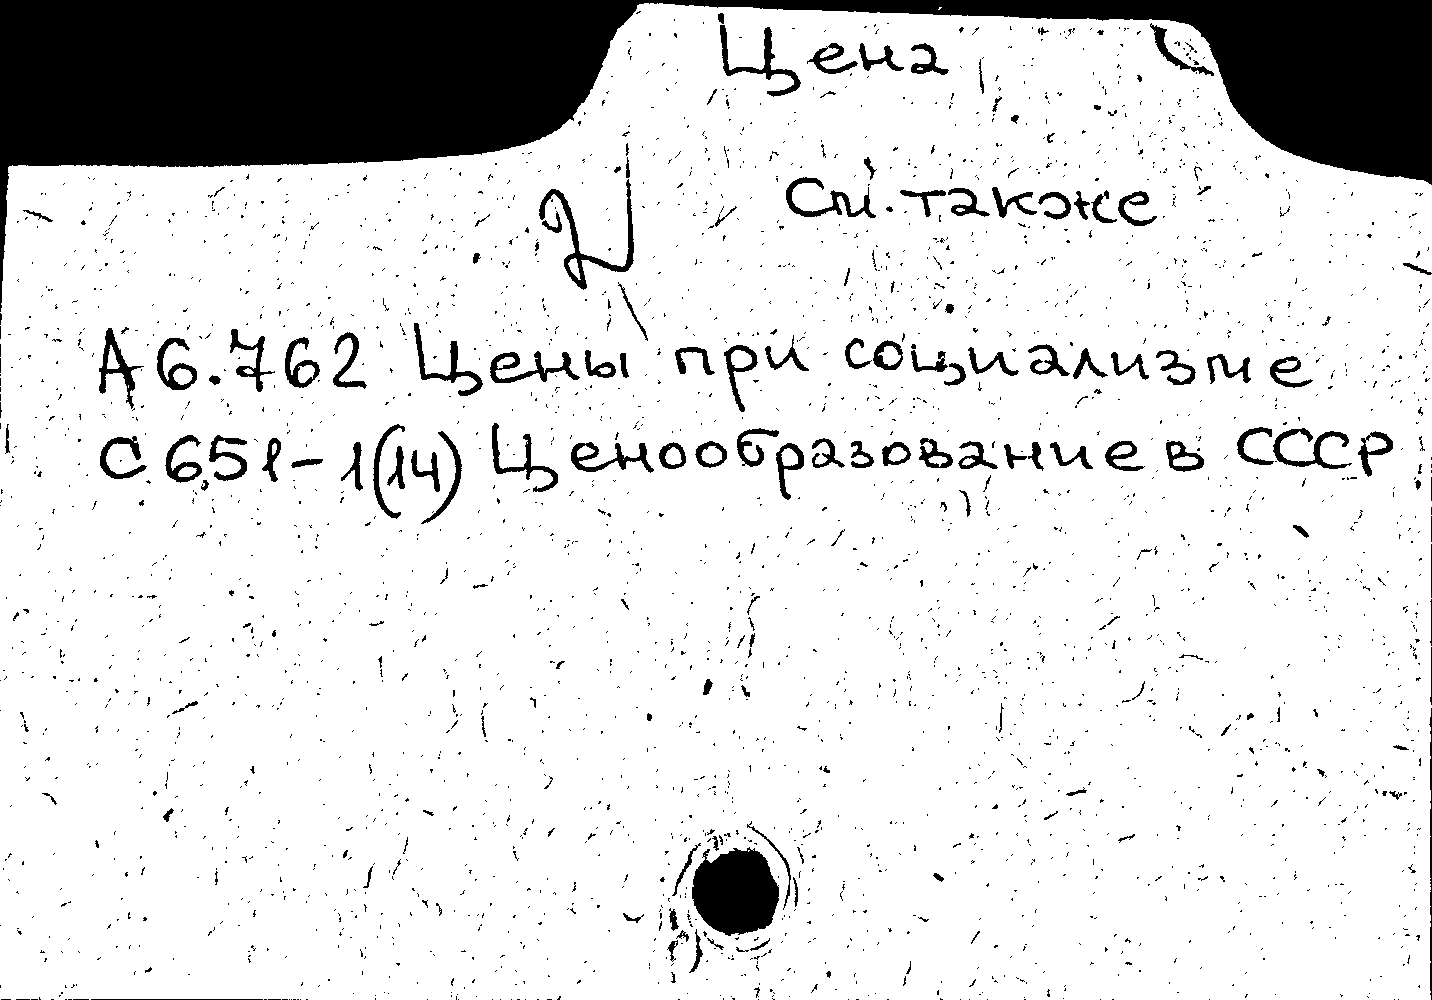 Цена
См. также
А6.762 Цены при социализме
С651-1(14) Ценообразование в СССР